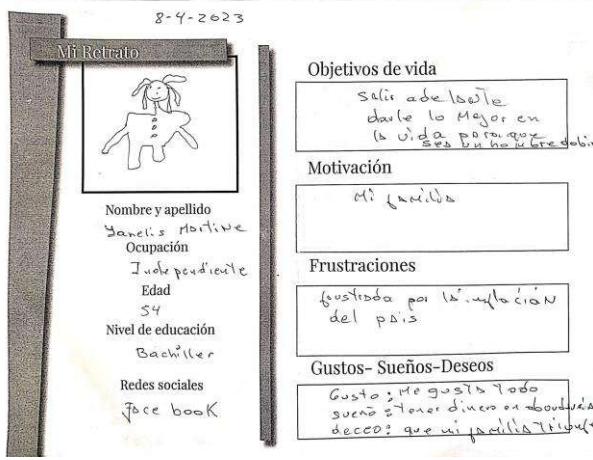 8-4-2023
Mi Retrato
Nombre y apellido
Yanelis Martine
Ocupación
Independiente
Edad
54
Nivel de educación
Bachiller
Redes sociales
Face book
Objetivos de vida
Salir adelante
darle lo Mejor en
la vida para que
sea un hombre de bien
Motivación
Mi familia
Frustraciones
frustrada por la inflación
del pais
Gustos- Sueños-Deseos
Gusto: Me gusta Todo
sueño: Tener dinero en
deceo: que mi familia